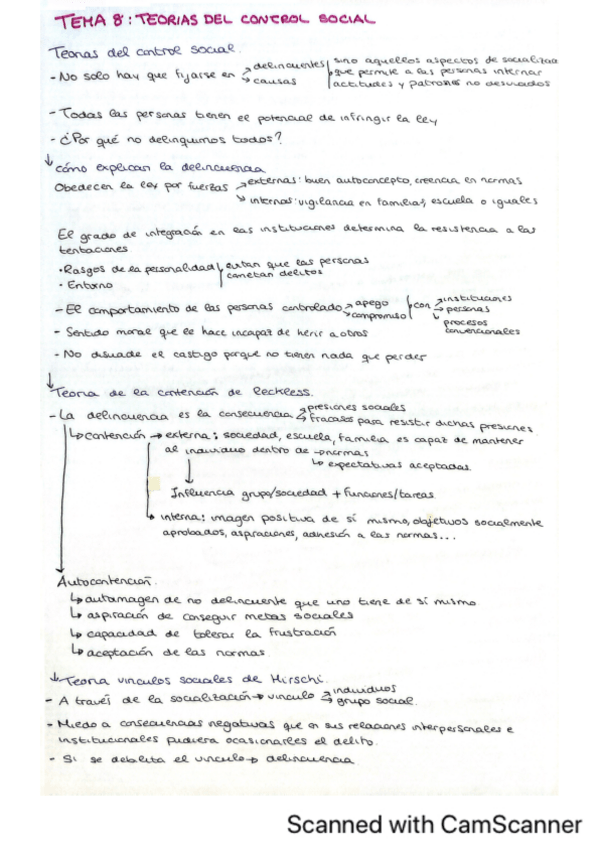 TEMA 8: TEORIAS DEL CONTROL SOCIAL
Teorias del control social.
- No solo hay que fijarse en → delincuentes → causas | sino aquellos aspectos de socialización que permite a las personas internar actitudes y patrones no desviados
- Todas las personas tienen el potencial de infringir la ley
- ¿Por qué no delinquimos todos?
↓ cómo explican la delincuencia
Obedecen la ley por fuerzas → externas: buen autoconcepto, creencia en normas
↘ internas: vigilancia en familia, escuela o iguales
El grado de integración en las instituciones determina la resistencia a las
tentaciones
• Rasgos de la personalidad
• Entorno
evitan que las personas
cometan delitos
- El comportamiento de las personas controlado → apego → compromiso | con → instituciones → personas ↳ procesos convencionales
- Sentido moral que le hace incapaz de herir a otros
- No disuade el castigo porque no tienen nada que perder
↓ Teoria de la contención de Reckless.
- La delincuencia es la consecuencia → presiones sociales
→ fracasos para resistir dichas presiones
↳ contención → externa: sociedad, escuela, familia es capaz de mantener
al individuo dentro de → normas
↳ expectativas aceptadas.
Influencia grupo/sociedad + funciones/tareas
↳ interna: imagen positiva de sí mismo, objetivos socialmente
aprobados, aspiraciones, adhesión a las normas...
Autocontención.
↳ autoimagen de no delincuente que uno tiene de sí mismo
↳ aspiración de conseguir metas sociales
↳ capacidad de tolerar la frustración
↳ aceptación de las normas.
↓ Teoria vinculos sociales de Hirschi.
- A través de la socialización → vinculo → individuos
→ grupo social.
- Miedo a consecuencias negativas que en sus relaciones interpersonales e
institucionales pudiera ocasionarles el delito.
- Si se debilita el vinculo → delincuencia
Scanned with CamScanner